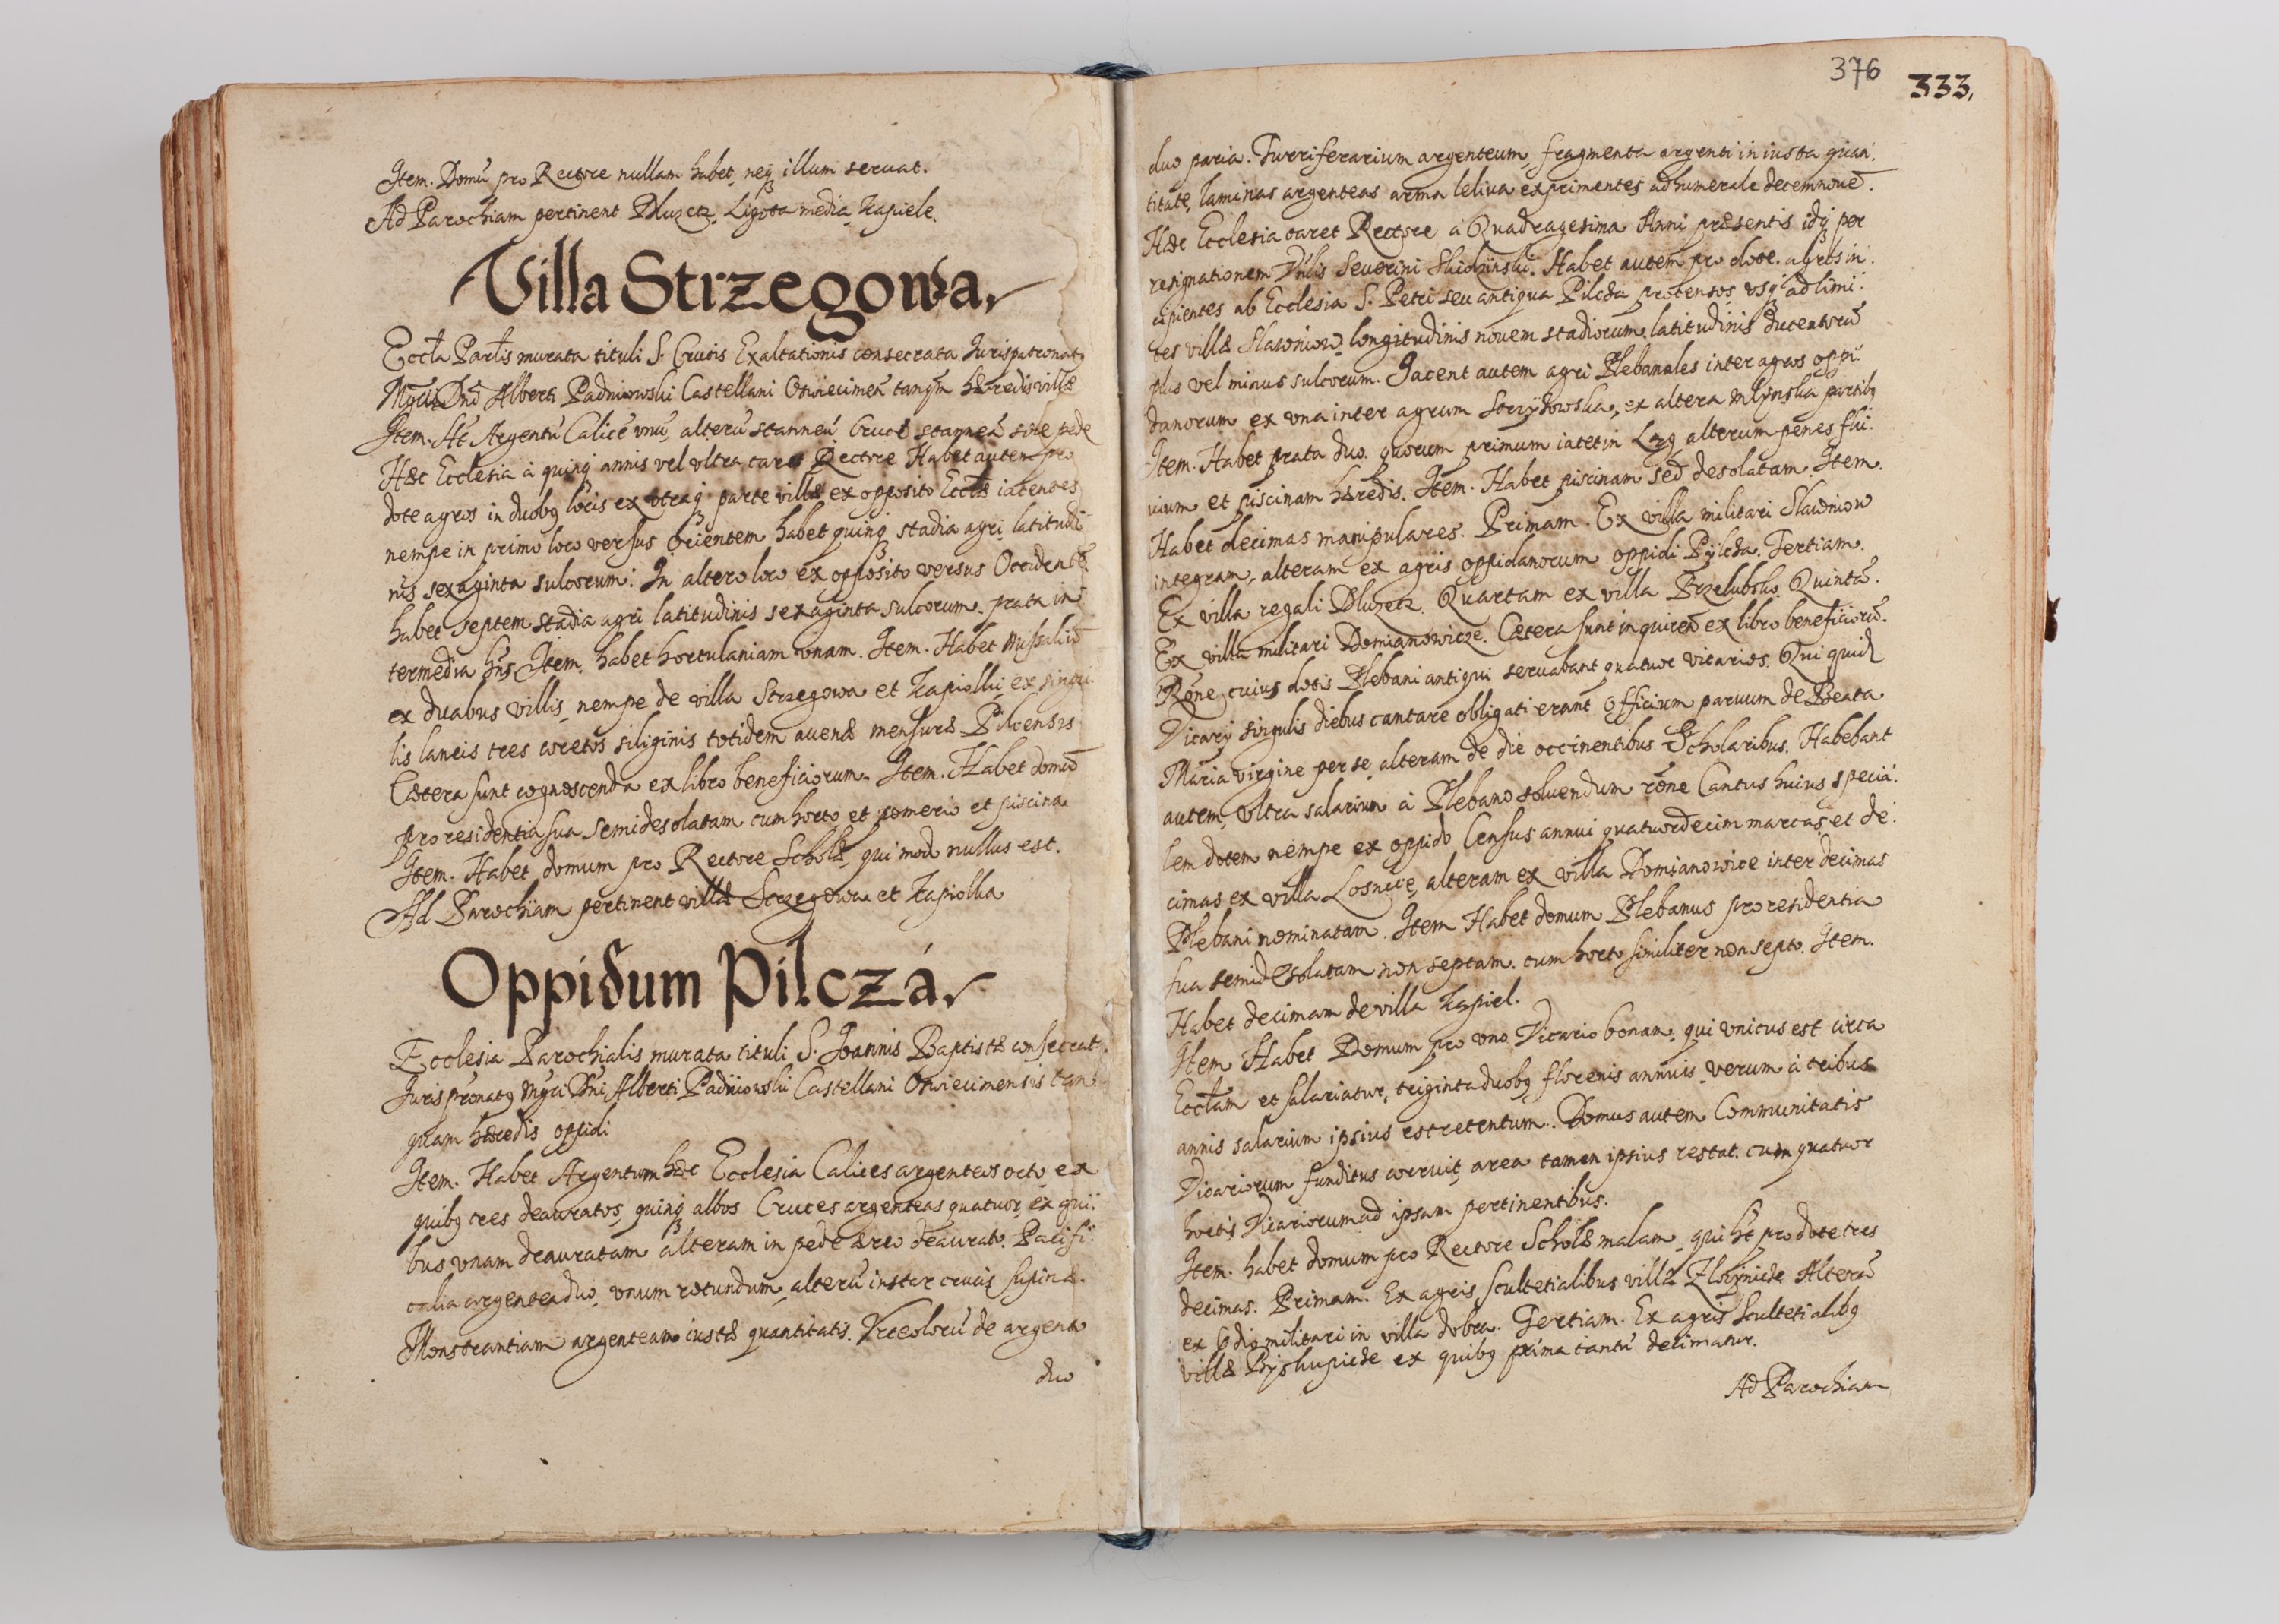 Item. Domū pro Rectore nullam habet, neq₃ illum seruat.
Ad Parochiam pertinent Dluzecz, Ligota media, Kapiele.
Villa Strzegowa.
Eccła Parłis murata tituli S. Crucis Exaltationis consecrata Jurispatronat9
Mgci Dñi Alberti Padniowski Castellani Oswiecimeñ tanq̃m hæredis villæ
Item. Hēt Argentū Calicē vnū, alterū stanneū Crucē stanneā sine pede
Hæc Ecclesia à quinq₃ annis vel vltra caret Rectore Habet autem pro
dote agros in duob9 locis ex vtraq₃ parte villæ ex opposito Eccłæ iacentes
nempe in primo loco versus Orientem habet quinq₃ stadia agri latitudi
nis sexaginta sulcorum: In altero loco ex opposito versus Occidentē
habet septem stadia agri latitudinis sexaginta sulcorum, prata in:
termedia hñs Item. habet hortulaniam vnam. Item. Habet missaliū
ex duabus villis, nempe de villa Strzegowa et Kapiolki ex singu
lis laneis tres coretos siliginis totidem auenæ mensuræ Pilcensis
Cætera sunt cognoscenda ex libro beneficiorum. Item. Habet domū
pro residentia sua semidesolatam cum horto et pomerio et piscina
Item. Habet domum pro Rectore Scholæ, qui modo nullus est.
Ad Parochiam pertinent villæ Strzegowa et Kapiolka
Oppidum Pilczá.
Ecclesia Parochialis murata tituli S. Joannis Baptistæ consecrat
Juris pr̃onat9 Mg̃ci Dñi Alberti Padniowski Castellani Oswiecimensis tan
quam hæredis oppidi
Item. Habet Argentum hæc Ecclesia Calices argenteos octo, ex
quib9 tres deauratos, quinq₃ albos Cruces argenteas quatuor, ex qui:
bus vnam deauratam alteram in pede æreo deaurato. Pacifi:
calia argentea duo, vnum rotundum, alterū instar crucis supinæ.
Monstrantiam argenteam iustæ quantitatis. Vrceolorū de argento
duo
376
333.
duo paria. Turriferarium argenteum, fragmenta argenti in iusta quan:
titate, laminas argenteas arma leliua exprimentes ad humerale decemnouē.
Hæc Ecclesia caret Rectore à Quadragesima Anni præsentis idq₃ per
resignationem Dñlis Seuerini. Habet autem pro dote. agros in:
cipientes ab Ecclesia S. Petri seu antiqua Pilcza protensos vsq₃ ad limi:
tes villæ Slawniow, longitudinis nouem stadiorum, latitudinis ducentorū
plus vel minus sulcorum. Jacent autem agri Plebanales inter agros oppi:
danorum ex vna inter agrum Strzÿzowska, ex altera Mlÿnska partib9
Item. Habet prata duo. quorum primum iacet in Lzg alterum penes flu:
uium et piscinam hæredis. Item. Habet piscinam sed desolatam. Item.
Habet decimas manipulares. Primam. Ex villa militari Slawniow
integram, alteram ex agris oppidanorum oppidi Pÿlcza. Tertiam.
Ex villa regali Dluzecz. Quartam ex villa Przelubsko. Quintā.
Ex villa militari Domianowicze. Cætera sunt inquireñ ex libro beneficiorū.
R̃one, cuius dotis Plebani antiqui seruabant quatuor vicarios. Qui quid
Vicarÿ singulis diebus cantare obligati erant Officium paruum de Beata
Maria virgine per se, alteram de die occinentibus Scholaribus. Habebant
autem, vltra salarium à Plebano soluendum rõne Cantus huius specia:
lem dotem nempe ex oppido Census annui quatuordecim marcas, et de:
cimas ex villa Losnice, alteram ex villa Domianowice inter decimas
Plebani nominatam. Item Habet domum Plebanus pro residentia
sua semidesolatam non septam. cum horto similiter non septo. Item.
Habet decimam de villa Kapiel.
Item Habet Domum pro vno Vicario bonam, qui vnicus est circa
Eccłam et salariatur, triginta duob9 florenis annuis, verum à tribus
annis salarium ipsius est retentum. Domus autem Communitatis
Vicariorum funditus corruit, area tamen ipsius restat. cum quatuor
hortis Vicariorum ad ipsam pertinentibus.
Item. habet domum pro Rectore Scholæ malam, qui hēt pro dote tres
decimas. Primam. Ex agris scultetialibus villæ Alterā
ex prædio militari in villa dobra. Tertiam. Ex agris Scultetialib9
villæ Bÿskupicze ex quib9 prima tantū decimatur.
Ad Parochiam